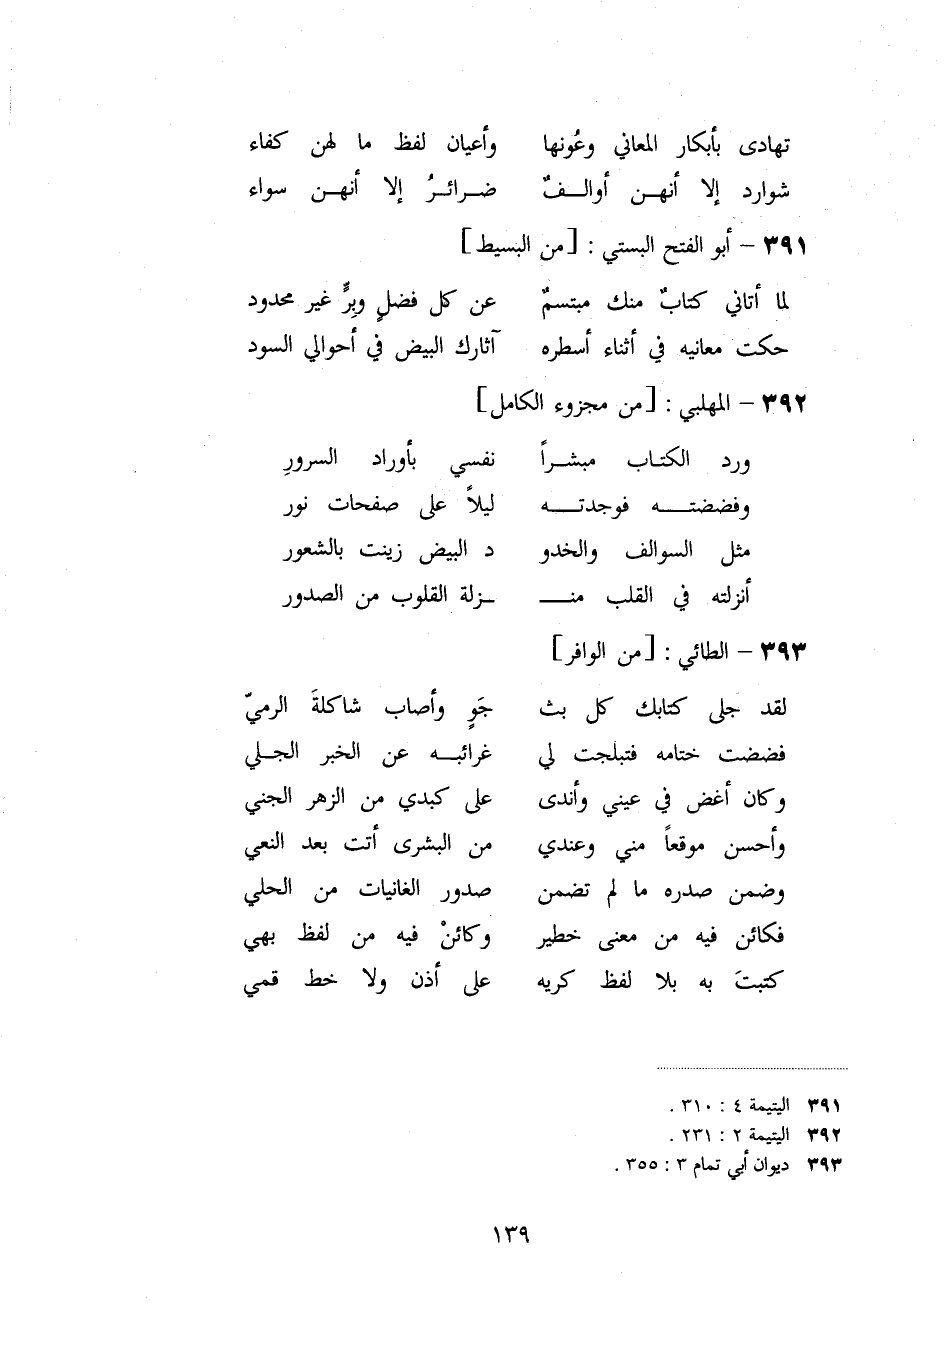 تهادى بأبكار المعاني وعُونها وأعيان لفظ ما لهن كفاء
شوارد إلا أنهن أوالفٌ ضرائرُ إلا أنهن سواء
٣٩١ – أبو الفتح البستي : [من البسيط]
لما أتاني كتابٌ منك مبتسمٌ عن كل فضلٍ وبرٍّ غير محدود
حكت معانيه في أثناء أسطره آثارك البيض في أحوالي السود
٣٩٢ – المهلبي : [من مجزوء الكامل]
ورد الكتاب مبشراً نفسي بأوراد السرورِ
وفضضته فوجدته ليلاً على صفحات نور
مثل السوالف والخدو د البيض زينت بالشعور
أنزلته في القلب منـ ـزلة القلوب من الصدور
٣٩٣ – الطائي : [من الوافر]
لقد جلى كتابك كل بث جَوٍ وأصاب شاكلةَ الرميّ
فضضت ختامه فتبلجت لي غرائبه عن الخبر الجلي
وكان أغض في عيني وأندى على كبدي من الزهر الجني
وأحسن موقعاً مني وعندي من البشرى أتت بعد النعي
وضمن صدره ما لم تضمن صدور الغانيات من الحلي
فكائن فيه من معنى خطير وكائنْ فيه من لفظ بهي
كتبتَ به بلا لفظ كريه على أذن ولا خط قمي
٣٩١ اليتيمة ٤ : ٣١٠ .
٣٩٢ اليتيمة ٢ : ٢٣١ .
٣٩٣ ديوان أبي تمام ٣ : ٣٥٥ .
١٣٩